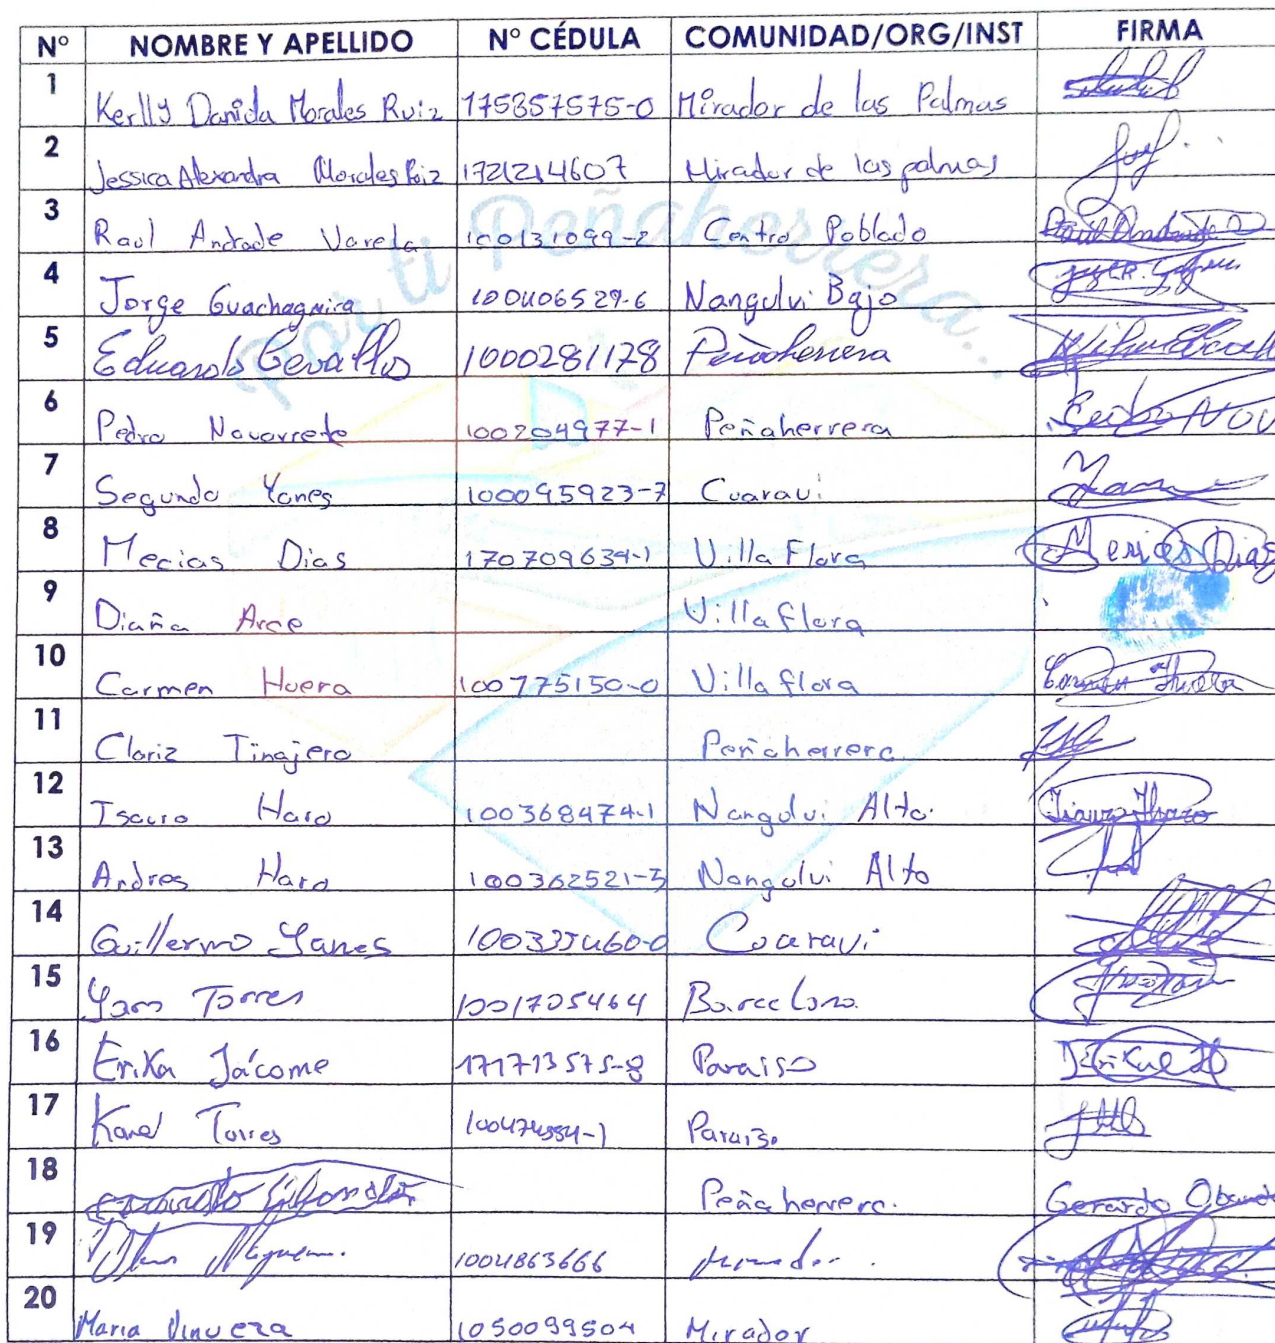 N° NOMBRE Y APELLIDO N° CÉDULA COMUNIDAD/ORG/INST FIRMA
1 Kerlly Daniela Morales Ruiz 175857575-0 Mirador de las Palmas
2 Jessica Alexandra Morales Ruiz 1721214607 Mirador de las palmas
Por ti Peñaherrera...
3 Raul Andrade Varela 100131099-2 Centro Poblado Raul Andrade
4 Jorge Guachagmira 100406529-6 Nangulvi Bajo
5 Eduardo Cevallos 1000281178 Peñaherrera
6 Pedro Navarrete 100204977-1 Peñaherrera Pedro NAV
7 Segundo Yanes 100095923-7 Cuaravi
8 Mecias Dias 170709634-1 Villa Flora Mesias Dias
9 Diaña Arce Villa flora
10 Carmen Huera 100775150-0 Villa flora Carmen Huera
11 Clariz Tinajero Peñaherrera
12 Isauro Haro 100368474-1 Nangulvi Alto. Isauro Haro
13 Andres Haro 100362521-3 Nangulvi Alto
14 Guillermo Yanes Cuaravi
15 Torres 1001705464 Barcelona
16 Erika Jácome 171713575-8 Paraiso
17 Torres Paraiso
18 Peñaherrera. Gerardo Obando
19 1004863666
20 Maria Vinueza 1050099504 Mirador